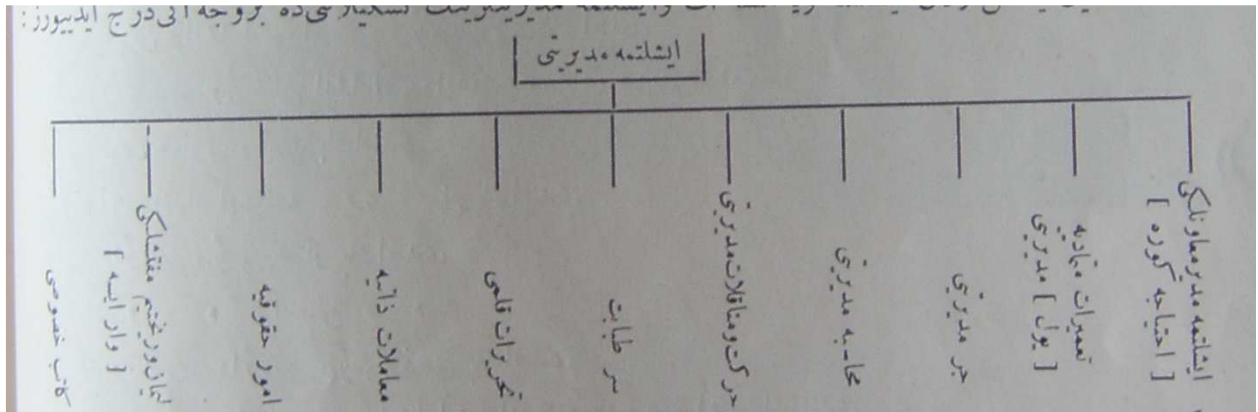 وايشلتمه مديريتلرينك تشكيلاتى ده بروجه آتى درج ايدييورز :
ايشلتمه مديريتى
ايشلتمه مدير معاونلكى
[ احتياجه كوره ]
تعميرات متماديه
[ يول ] مديريتى
جر مديريتى
محاسبه مديريتى
حركت ومناقلات مديريتى
سر طبابت
تحريرات قلمى
معاملات ذاتيه
امور حقوقيه
ليمان وريختيم مفتشلكى
[ وار ايسه ]
كاتب خصوصى